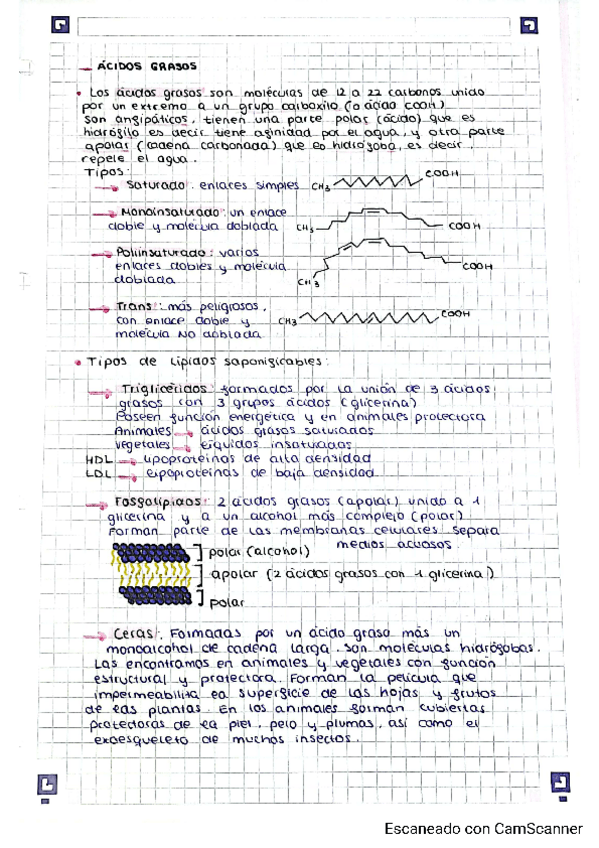 ÁCIDOS GRASOS
• Los ácidos grasos son moléculas de 12 a 22 carbonos unido
por un extremo a un grupo carboxilo (o ácido COOH)
son angipáticos, tienen una parte polar (ácido) que es
hidrófilo es decir tiene afinidad por el agua, y otra parte
apolar (cadena carbonada) que es hidrófoba, es decir,
repele el agua.
Tipos:
→ Saturado: enlaces simples CH3 COOH
→ Monoinsaturado: un enlace
doble y molécula doblada CH3 COOH
→ Poliinsaturado: varios
enlaces dobles y molécula
doblada CH3 COOH
→ Trans: más peligrosos,
con enlace doble y CH3 COOH
molécula NO doblada
• Tipos de lípidos saponificables:
→ Triglicéridos: formados por la unión de 3 ácidos
grasos con 3 grupos ácidos (glicerina)
Poseen función energética y en animales protectora
Animales → ácidos grasos saturados
vegetales → líquidos insaturados
HDL → lipoproteínas de alta densidad
LDL → lipoproteínas de baja densidad
→ Fosfolípidos: 2 ácidos grasos (apolar) unido a 1
glicerina y a un alcohol más complejo (polar)
Forman parte de las membranas celulares separa
medios acuosos.
polar (alcohol)
apolar (2 ácidos grasos con 1 glicerina)
polar
→ Ceras: Formadas por un ácido graso más un
monoalcohol de cadena larga. son moléculas hidrófobas.
Las encontramos en animales y vegetales con función
estructural y protectora. Forman la película que
impermeabiliza la superficie de las hojas y frutos
de las plantas. En los animales forman cubiertas
protectoras de la piel, pelo y plumas, así como el
exoesqueleto de muchos insectos.
Escaneado con CamScanner